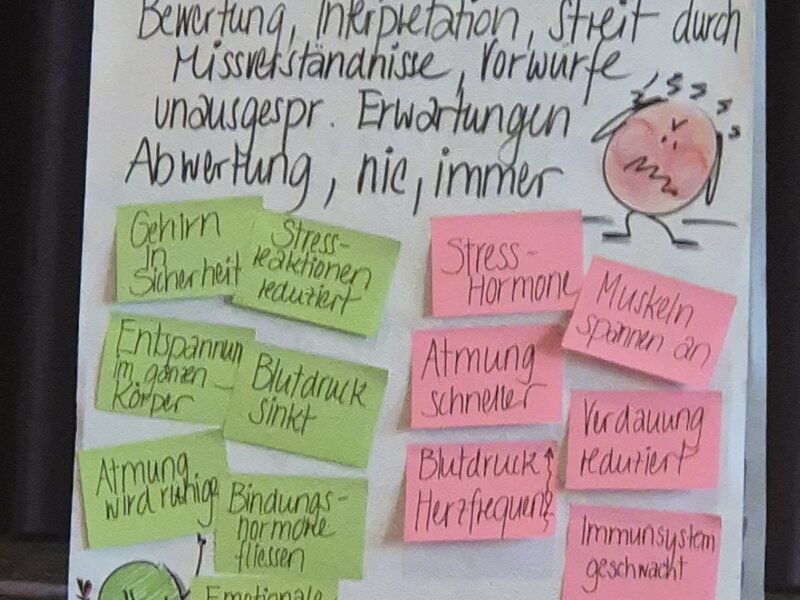 Bewertung, Interpretation, Streit durch
Missverständnisse, Vorwürfe
unausgespr. Erwartungen
Abwertung, nie, immer
Gehirn
in
Sicherheit
Stress-
reaktionen
reduziert
Entspannun
im ganzen
Körper
Blutdruck
sinkt
Atmung
wird ruhige
Bindungs-
hormone
fliessen
Emotionale
Stress-
Hormone
Muskeln
spannen an
Atmung
schneller
Verdauung
reduziert
Blutdruck ↑
Herzfrequenz
Immunsystem
geschwächt